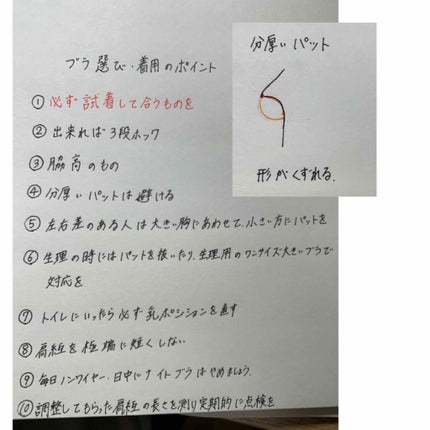 ブラ選び・着用のポイント
① 必ず試着して合うものを
② 出来れば3段ホック
③ 脇高のもの
④ 分厚いパットは避ける
⑤ 左右差のある人は大きい胸にあわせて、小さい方にパットを
⑥ 生理の時にはパットを抜いたり、生理用のワンサイズ大きいブラで
対応を
⑦ トイレにいったら必ず乳ポジションを直す
⑧ 肩紐を極端に短くしない
⑨ 毎日ノンワイヤー、日中にナイトブラはやめましょう。
⑩ 調整してもらった肩紐の長さを測り定期的に点検を
分厚いパット
形がくずれる.